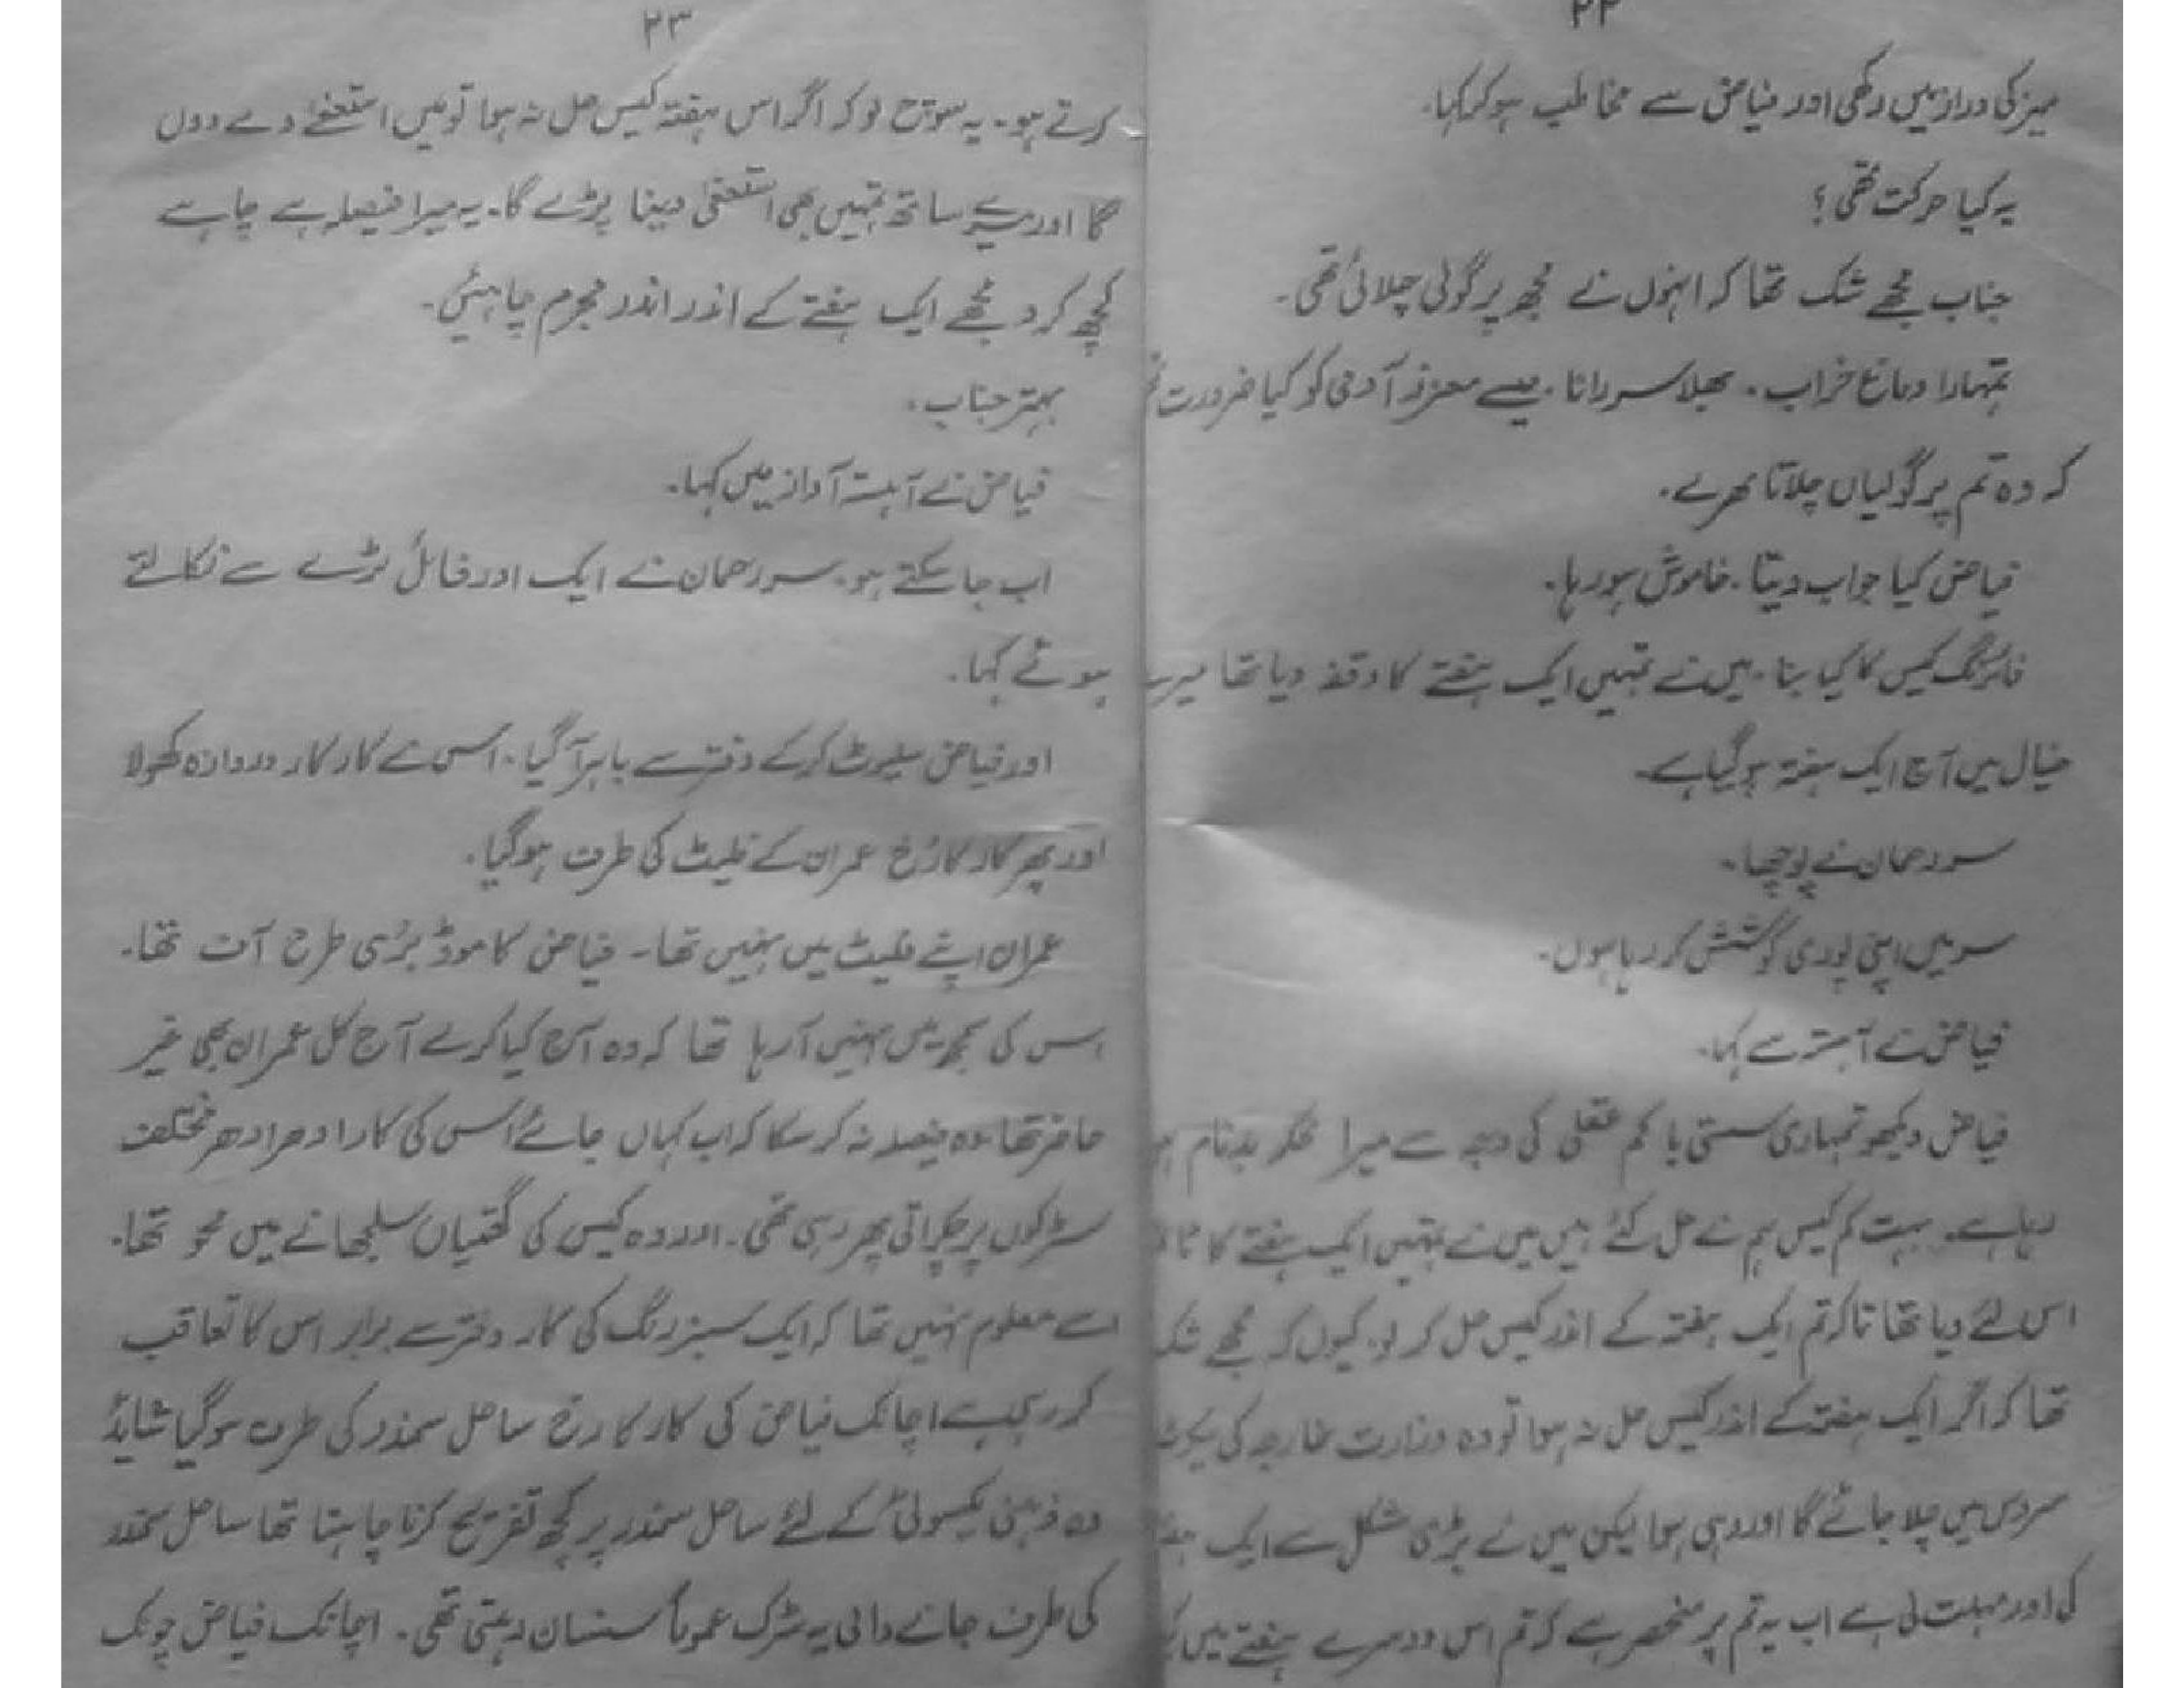 ۲۲
میز کی دراز میں رکھی اور فیاض سے مخاطب ہو کر کہا۔
یہ کیا حرکت تھی؟
جناب مجھے شک تھا کہ انہوں نے مجھ پر گولی چلائی تھی۔
تمہارا دماغ خراب۔ بھلا سر رانا جیسے معزز آدمی کو کیا ضرورت
کہ وہ تم پر گولیاں چلاتا پھرے۔
فیاض کیا جواب دیتا۔ خاموش ہو رہا۔
فائرنگ کیس کا کیا بنا۔ میں نے تمہیں ایک ہفتے کا وقفہ دیا تھا میرے
خیال میں آج ایک ہفتہ ہو گیا ہے۔
سر رحمان نے پوچھا۔
سر میں اپنی پوری کوشش کر رہا ہوں۔
فیاض نے آہستہ سے کہا۔
فیاض دیکھو تمہاری سستی یا کم عقلی کی وجہ سے میرا محکمہ بدنام ہو
رہا ہے۔ بہت کم کیس ہم نے حل کئے ہیں میں نے تمہیں ایک ہفتے کا
اس لئے دیا تھا تاکہ تم ایک ہفتہ کے اندر کیس حل کر لو۔ کیوں کہ مجھے شک
تھا کہ اگر ایک ہفتہ کے اندر کیس حل نہ ہوا تو وہ وزارت خارجہ کی سیکرٹ
سروس میں چلا جائے گا اور وہی ہوا لیکن میں نے بڑی مشکل سے ایک ہفتہ
کی اور مہلت لی ہے اب یہ تم پر منحصر ہے کہ تم اس دوسرے ہفتے میں
۲۳
کرتے ہو۔ یہ سوچ لو کہ اگر اس ہفتہ کیس حل نہ ہوا تو میں استعفےٰ دے دوں
گا اور میرے ساتھ تمہیں بھی استعفیٰ دینا پڑے گا۔ یہ میرا فیصلہ ہے چاہے
کچھ کرو مجھے ایک ہفتے کے اندر اندر مجرم چاہئیں۔
بہتر جناب۔
فیاض نے آہستہ آواز میں کہا۔
اب جا سکتے ہو۔ سر رحمان نے ایک اور فائل ٹرے سے نکالتے
ہوئے کہا۔
اور فیاض سلیوٹ کر کے دفتر سے باہر آ گیا۔ اس نے کار کا دروازہ کھولا
اور پھر کار کا رُخ عمران کے فلیٹ کی طرف ہو گیا۔
عمران اپنے فلیٹ میں نہیں تھا۔ فیاض کا موڈ بُری طرح آف تھا۔
اس کی سمجھ میں نہیں آ رہا تھا کہ وہ آج کیا کرے آج کل عمران بھی غیر
حاضر تھا وہ فیصلہ نہ کر سکا کہ اب کہاں جائے اُس کی کار ادھر ادھر مختلف
سڑکوں پر چکراتی پھر رہی تھی۔ اور وہ کیس کی گتھیاں سلجھانے میں محو تھا۔
اسے معلوم نہیں تھا کہ ایک سبز رنگ کی کار دفتر سے برابر اس کا تعاقب
کر رہی ہے اچانک فیاض کی کار کا رخ ساحل سمندر کی طرف ہو گیا شائد
وہ ذہنی یکسوئی کے لئے ساحل سمندر پر کچھ تفریح کرنا چاہتا تھا ساحل سمندر
کی طرف جانے والی یہ سڑک عموماً سنسان رہتی تھی۔ اچانک فیاض چونک